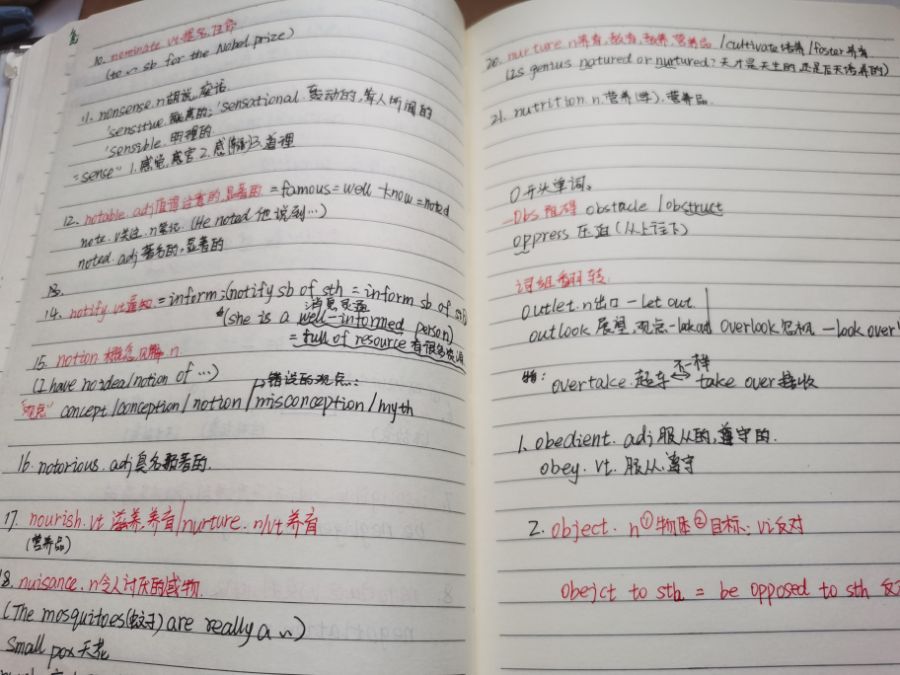 10. nominate vt提名,任命
(to ~ sb for the Nobel prize)
11. nonsense.n胡说,废话.
'sensitive.敏感的; 'sensational.轰动的,骇人听闻的
'sensible.明理的
"sense" 1.感觉,感官2.感 3.道理
12. notable.adj值得注意的,显著的 =famous=well-know=noted
note.v关注.n笔记. (He noted 他说到…)
noted.adj著名的,显著的
13.
14. notify vt通知 =inform:(notify sb of sth = inform sb of sth)
消息灵通
*(she is a well-informed person)
=full of resource 有很多资源
15. notion 概念,见解 n
(I have no idea/notion of …)
错误的观点:
"观点" concept/conception/notion/misconception/myth
16. notorious.adj臭名昭著的.
17. nourish.vt 滋养,养育/nurture. n/vt 养育
(营养品)
18. nuisance.n令人讨厌的或物.
(The mosquitoes(蚊子) are really a ~)
Small pox 天花
20. nurture n养育,教育,教养,营养品 /cultivate培养/foster养育
(Is genius natured or nurtured?天才是天生的,还是后天培养的)
21. nutrition.n.营养(学).营养品.
O开头单词。
Obs 阻碍 obstacle /obstruct
oppress 压迫(从上往下)
词组翻转
outlet.n出口-let out
outlook 展望,观点-look out overlook忽视 -look over
不一样
特: overtake.超车 take over接收
1. obedient. adj服从的,遵守的.
obey. vt. 服从,遵守
2. object. n①物体②目标; vi反对
obejct to sth = be opposed to sth 反